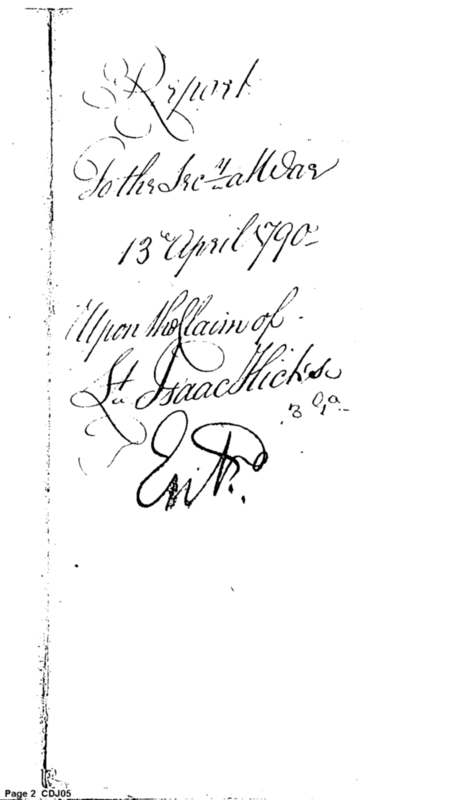 Report
To the Secy at War
13th April 1790
Upon the Claim of
Lt Isaac Hicks
3 Ga
Entd.
Page 2 CDJ05